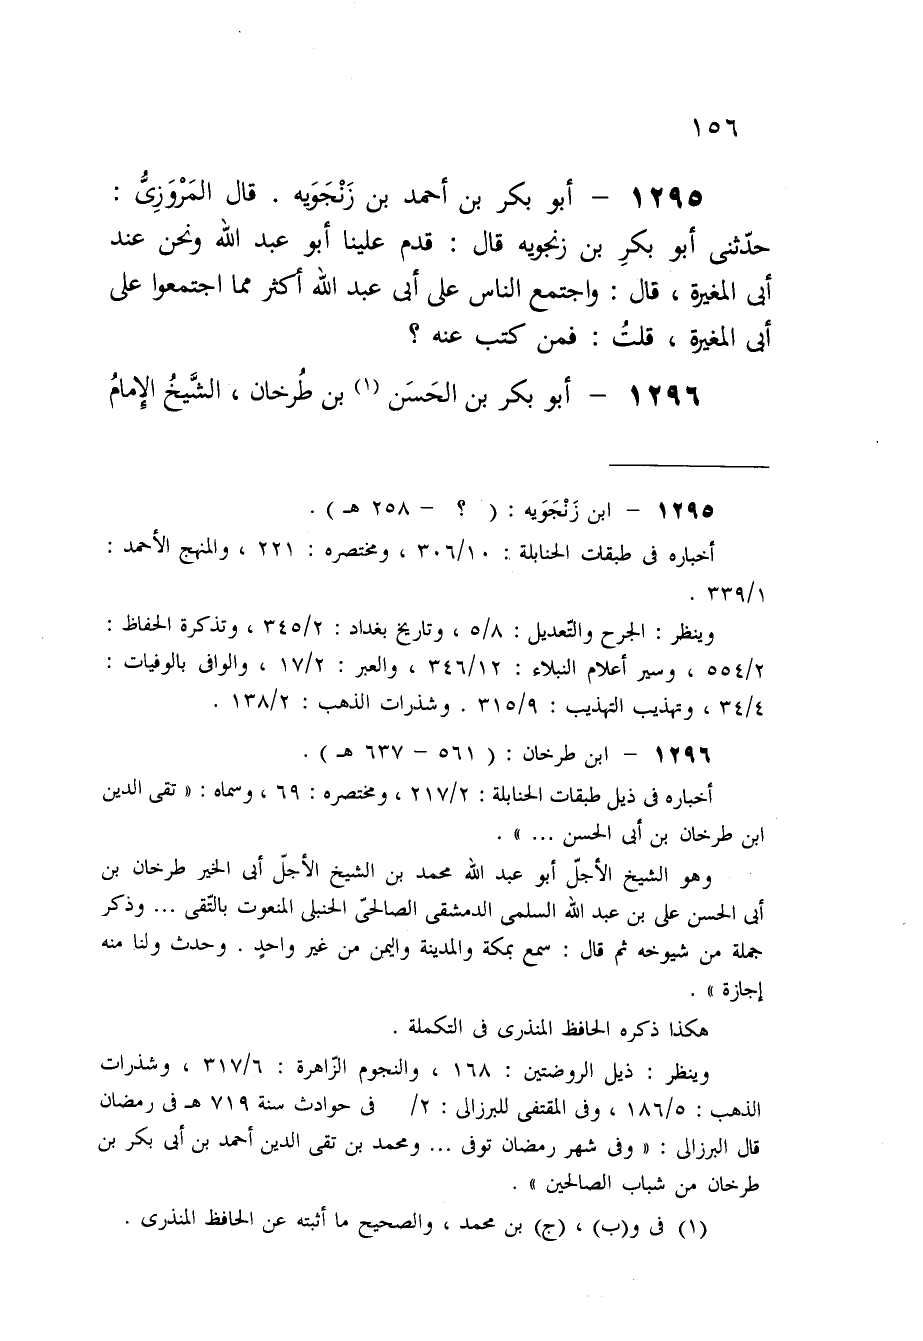 ١٥٦
١٢٩٥ – أبو بكر بن أحمد بن زَنْجَوَيه . قال المَرْوَزِىُّ :
حدّثنى أبو بكرِ بن زنجويه قال : قدم علينا أبو عبد الله ونحن عند
أبى المغيرة ، قال : واجتمع الناس على أبى عبد الله أكثر مما اجتمعوا على
أبى المغيرة ، قلتُ : فمن كتب عنه ؟
١٢٩٦ – أبو بكر بن الحَسَن (١) بن طُرخان ، الشَّيخُ الإِمامُ
١٢٩٥ – ابن زَنْجَوَيه : ( ؟ – ٢٥٨ هـ ) .
أخباره فى طبقات الحنابلة : ٣٠٦/١٠ ، ومختصره : ٢٢١ ، والمنهج الأحمد :
٣٣٩/١ .
وينظر : الجرح والتّعديل : ٥/٨ ، وتاريخ بغداد : ٣٤٥/٢ ، وتذكرة الحفاظ :
٥٥٤/٢ ، وسير أعلام النبلاء : ٣٤٦/١٢ ، والعبر : ١٧/٢ ، والوافى بالوفيات :
٣٤/٤ ، وتهذيب التهذيب : ٣١٥/٩ . وشذرات الذهب : ١٣٨/٢ .
١٢٩٦ – ابن طرخان : ( ٥٦١ – ٦٣٧ هـ ) .
أخباره فى ذيل طبقات الحنابلة : ٢١٧/٢ ، ومختصره : ٦٩ ، وسماه : « تقى الدين
ابن طرخان بن أبى الحسن ... » .
وهو الشيخ الأجلّ أبو عبد الله محمد بن الشيخ الأجلّ أبى الخير طرخان بن
أبى الحسن على بن عبد الله السلمى الدمشقى الصالحىّ الحنبلى المنعوت بالتّقى ... وذكر
جملة من شيوخه ثم قال : سمع بمكة والمدينة واليمن من غير واحدٍ . وحدث ولنا منه
إجازة » .
هكذا ذكره الحافظ المنذرى فى التكملة .
وينظر : ذيل الروضتين : ١٦٨ ، والنجوم الزّاهرة : ٣١٧/٦ ، وشذرات
الذهب : ١٨٦/٥ ، وفى المقتفى للبرزالى : ٢/ فى حوادث سنة ٧١٩ هـ فى رمضان
قال البرزالى : « وفى شهر رمضان توفى ... ومحمد بن تقى الدين أحمد بن أبى بكر بن
طرخان من شباب الصالحين » .
(١) فى و(ب) ، (ج) بن محمد ، والصحيح ما أثبته عن الحافظ المنذرى .